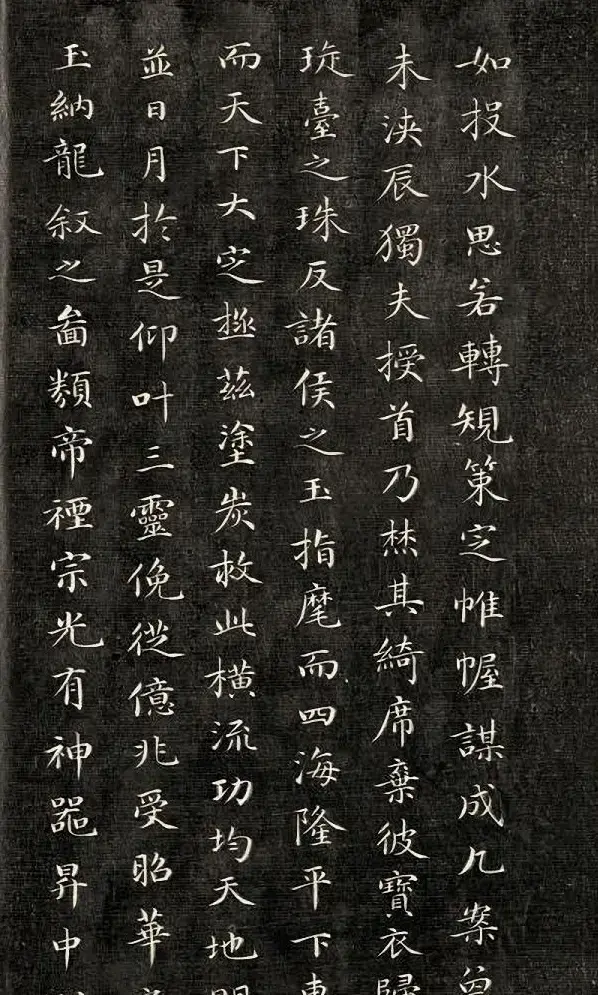 如投水思若轉規策定帷幄謀成几案曾
未浹辰獨夫授首乃焚其綺席棄彼寶衣歸
琁臺之珠反諸侯之玉指麾而四海隆平下車
而天下大定拯茲塗炭救此橫流功均天地明
並日月於是仰叶三靈俛從億兆受昭華
玉納龍敘之圖類帝禋宗光有神器昇中